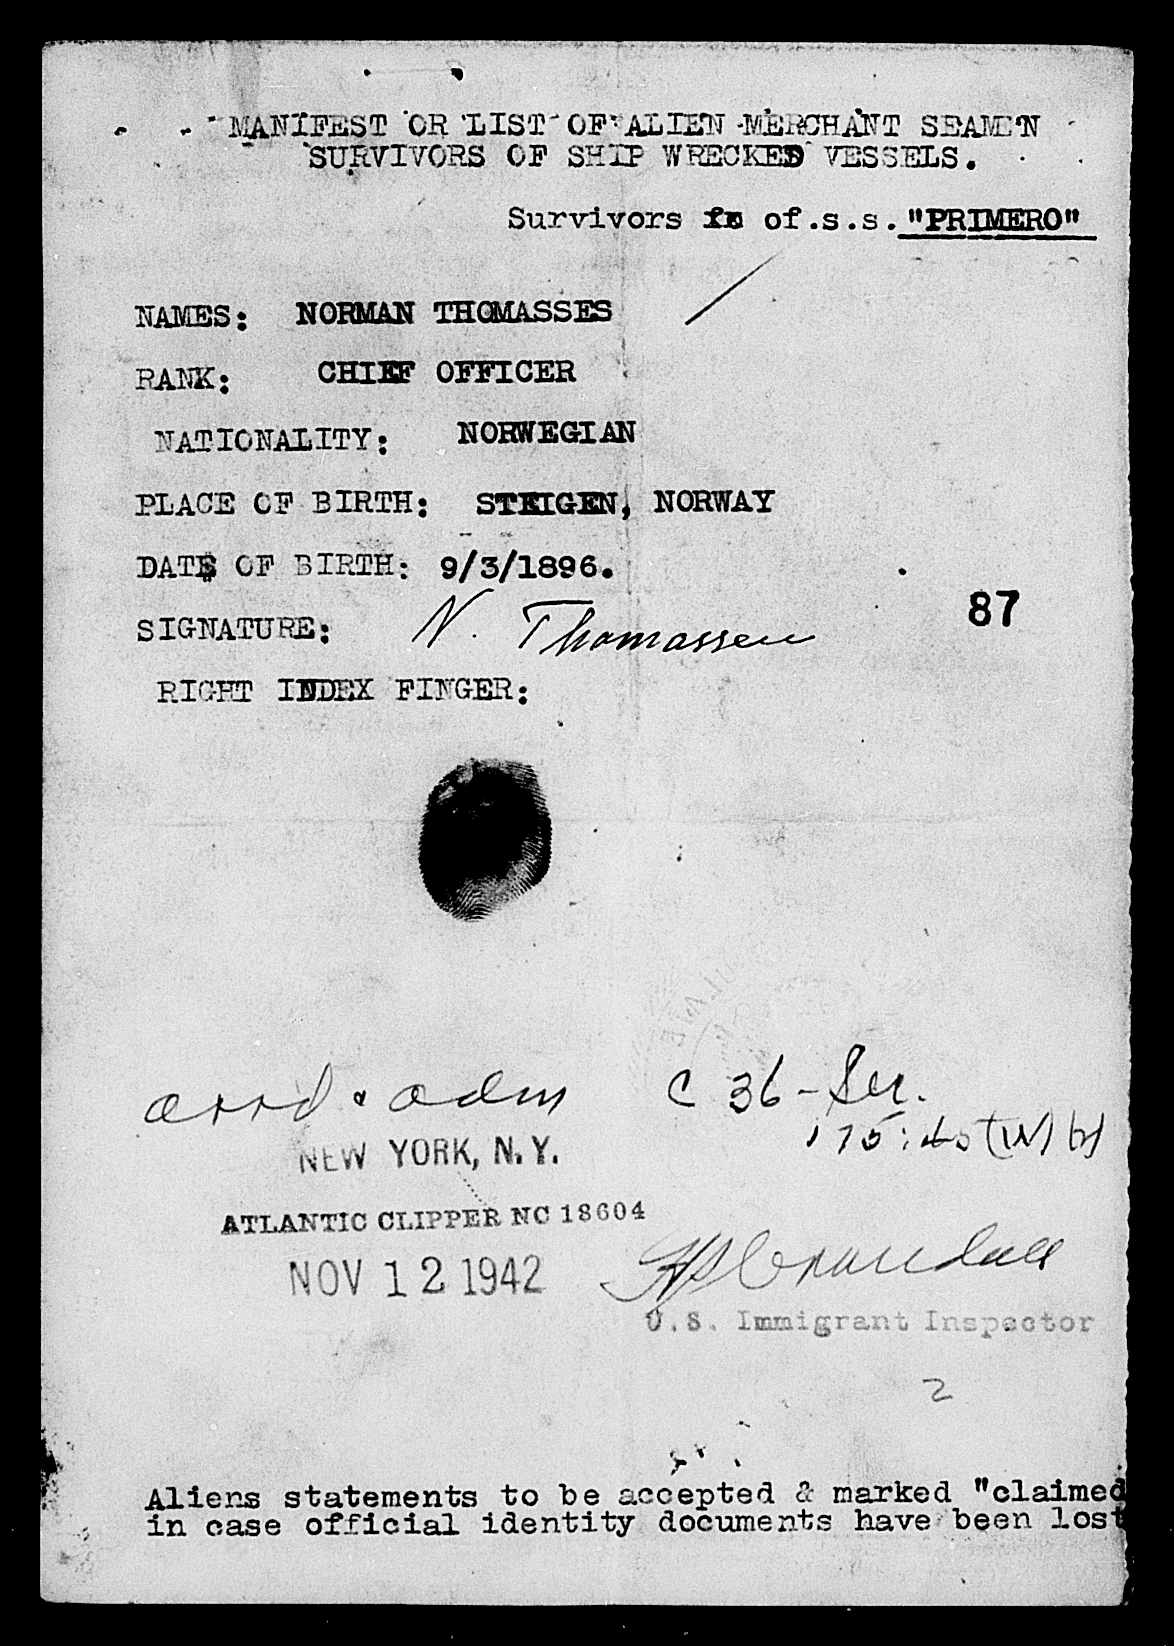 MANIFEST OR LIST OF ALIEN MERCHANT SEAMEN
SURVIVORS OF SHIP WRECKED VESSELS.
Survivors of.s.s. "PRIMERO"
NAMES: NORMAN THOMASSES
RANK: CHIEF OFFICER
NATIONALITY: NORWEGIAN
PLACE OF BIRTH: STEIGEN, NORWAY
DATE OF BIRTH: 9/3/1896.
SIGNATURE: N. Thomassen
87
RIGHT INDEX FINGER:
arrd & adm C 36 - Ser.
175:
NEW YORK, N.Y.
ATLANTIC CLIPPER NC 18604
NOV 12 1942
Crandall
U.S. Immigrant Inspector
2
Aliens statements to be accepted & marked "claimed
in case official identity documents have been lost